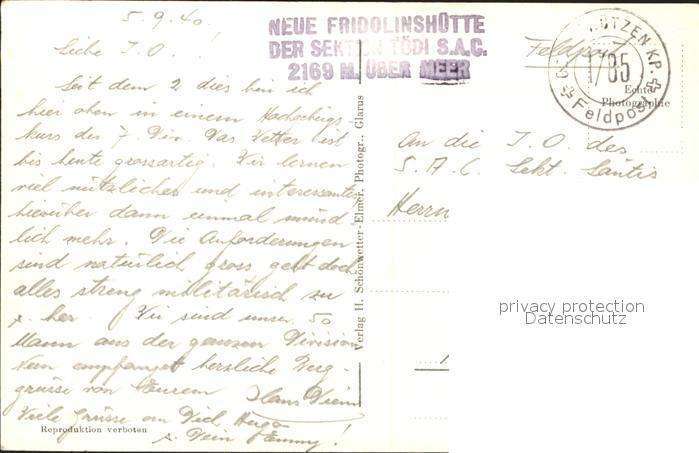 5.9.40!
Liebe J.O.!
Seit dem 2 dies bin ich
hier oben in einem Hochgebirgs-
kurs der 7. Div. Das Wetter ist
bis heute grossartig. Wir lernen
viel nützliches und interessantes
hierüber dann einmal münd-
lich mehr. Die Anforderungen
sind natürlich gross, geht doch
alles streng militärisch zu
her. Wir sind unser 50
Mann aus der ganzen Division
Nun empfanget herzliche Berg-
grüsse von Eurem Hans
Viele Grüsse an Dich Hugo
Dein Emmy!
Reproduktion verboten
Verlag H. Schönwetter-Elmer, Photogr., Glarus
NEUE FRIDOLINSHÜTTE
DER SEKTION TÖDI S.A.C.
2169 M. ÜBER MEER
Feldpost
ÜTZEN KP.
1/85
Feldpost
Echte
Photographie
An die J.O. des
S.A.C. Sekt. Säntis
Herrn
privacy protection
Datenschutz